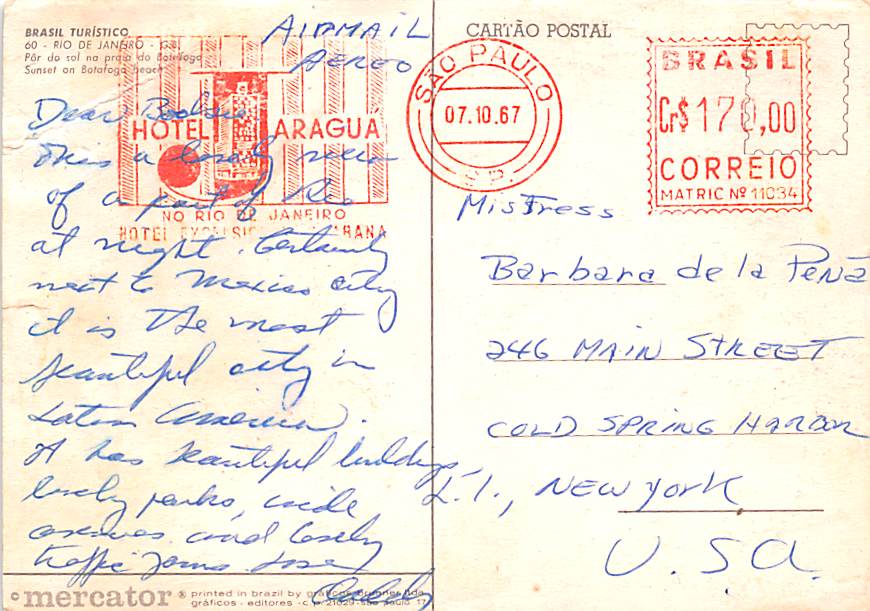 BRASIL TURÍSTICO
60 - RIO DE JANEIRO - GB.
Pôr do sol na praia do Botafogo
Sunset on Botafogo beach
AIRMAIL
AEREO
CARTÃO POSTAL
HOTEL ARAGUÁ
NO RIO DE JANEIRO
HOTEL EXCELSIOR COPACABANA
SÃO PAULO
07.10.67
S P
BRASIL
Cr$ 170,00
CORREIO
MATRIC Nº 11034
Dear
this is a lovely view
of a part of Rio
at night. Certainly
next to Mexico city
it is the most
beautiful city in
Latin America.
It has beautiful buildings,
lovely parks, wide
avenues and lovely
traffic jams. Love
Daddy
Mistress
Barbara de la Peña
246 MAIN STREET
COLD SPRING HARBOR
L.I., New York
U.S.A.
© mercator ® printed in brazil by gráficos brunner ltda
gráficos - editores - c.p. 21029 - são paulo 17